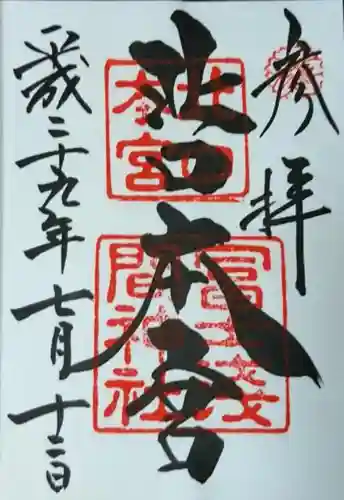 参拝
北口本宮
北口本宮
冨士浅間神社
平成二十九年七月十二日